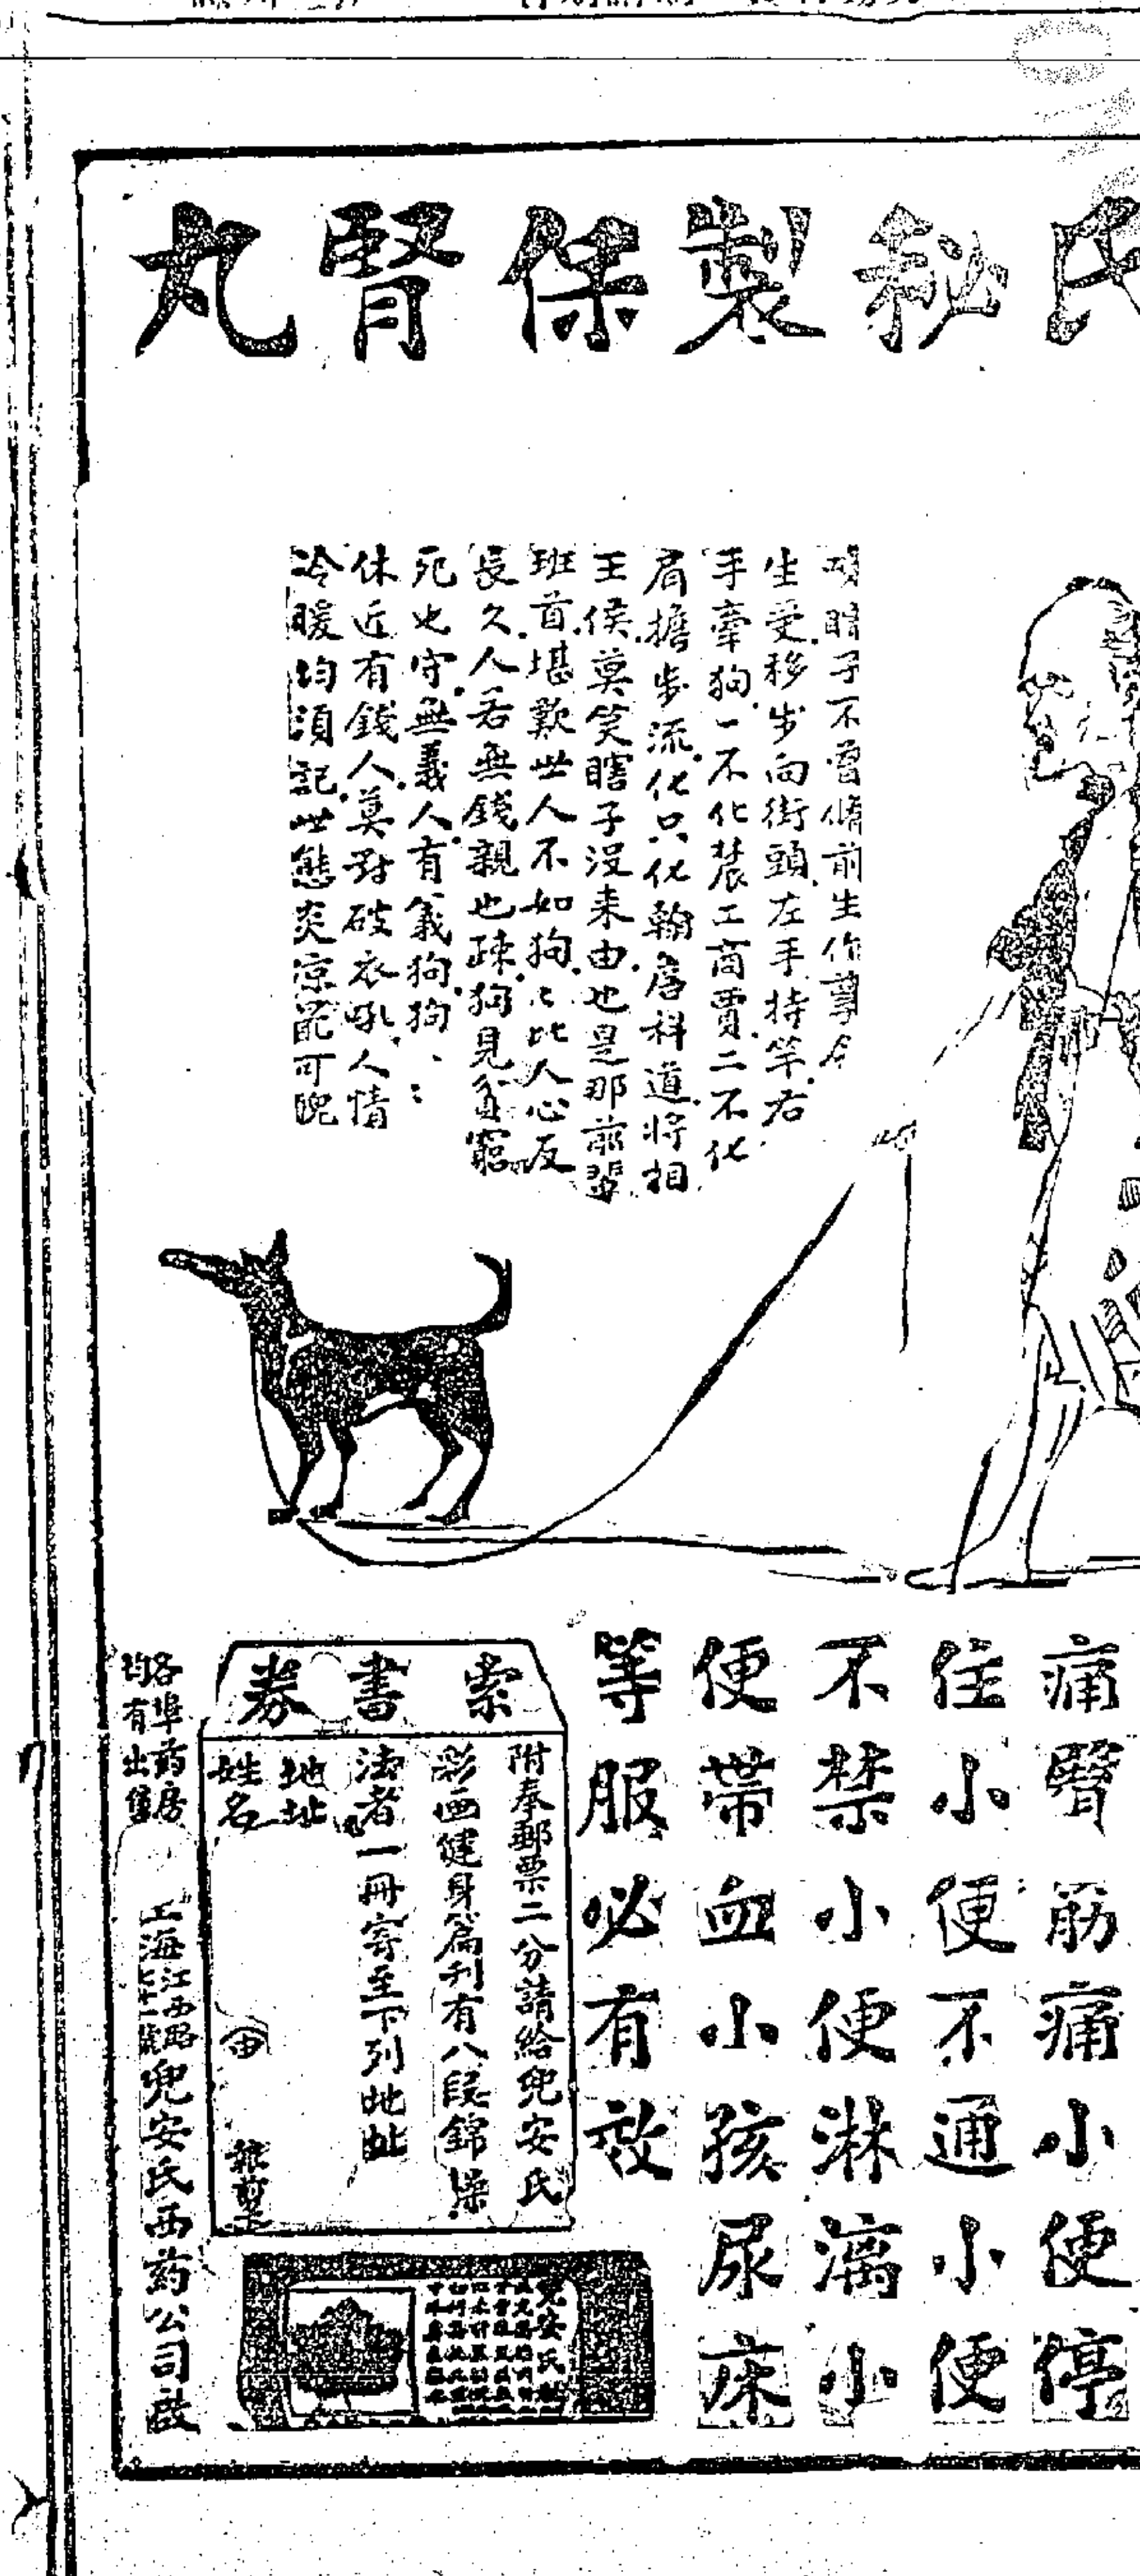 氏秘製保腎丸
瞎子不曾脩前生作孽今
生受移步向街頭左手持竿右
手牽狗一不化農工商賈二不化
肩擔步流化只化翰詹科道將相
王侯莫笑瞎子没来由也是那前輩
班首堪歎世人不如狗〻比人心反
長久人若無錢親也疎狗見貧窮
死也守無義人有義狗狗〻〻
休近有錢人莫對破衣吼人情
冷暖均須記世態炎凉龍可睨
痛臂筋痛小便停
住小便不通小便
不禁小便淋漓小
便帶血小孩尿床
等服必有效
索書券
附奉郵票二分請給兜安氏
彩画健身篇刋有八段錦操
法者一冊寄至下列地址
地址
姓名
申
各埠葯房
均有出售
上海江西路
七十一號
兜安氏西葯公司啟
兜安氏